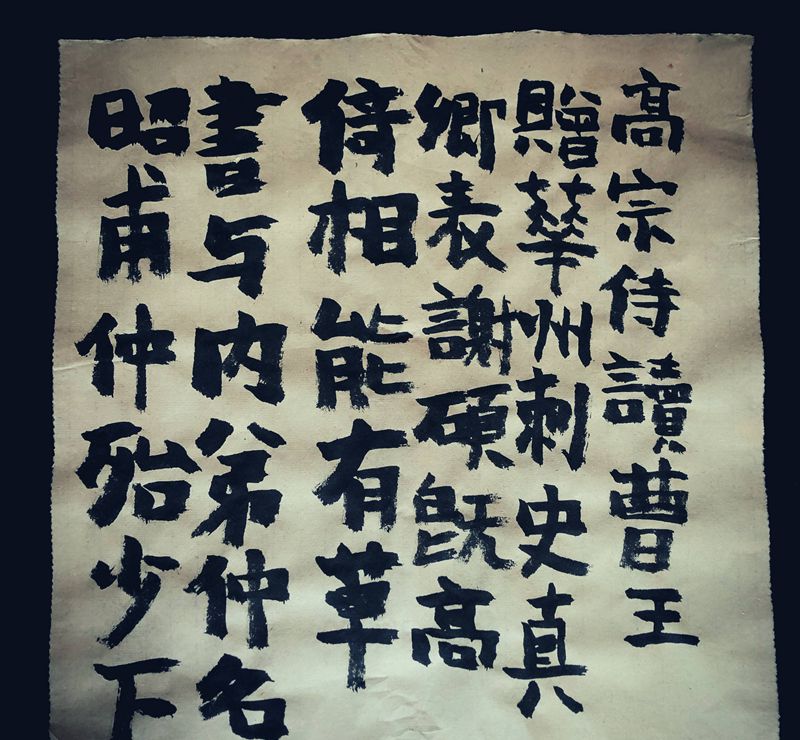 高宗侍讀曹王
贈華州刺史真
卿表謝碩既高
倚相能有草
書与内弟仲名
昭甫仲殆少下